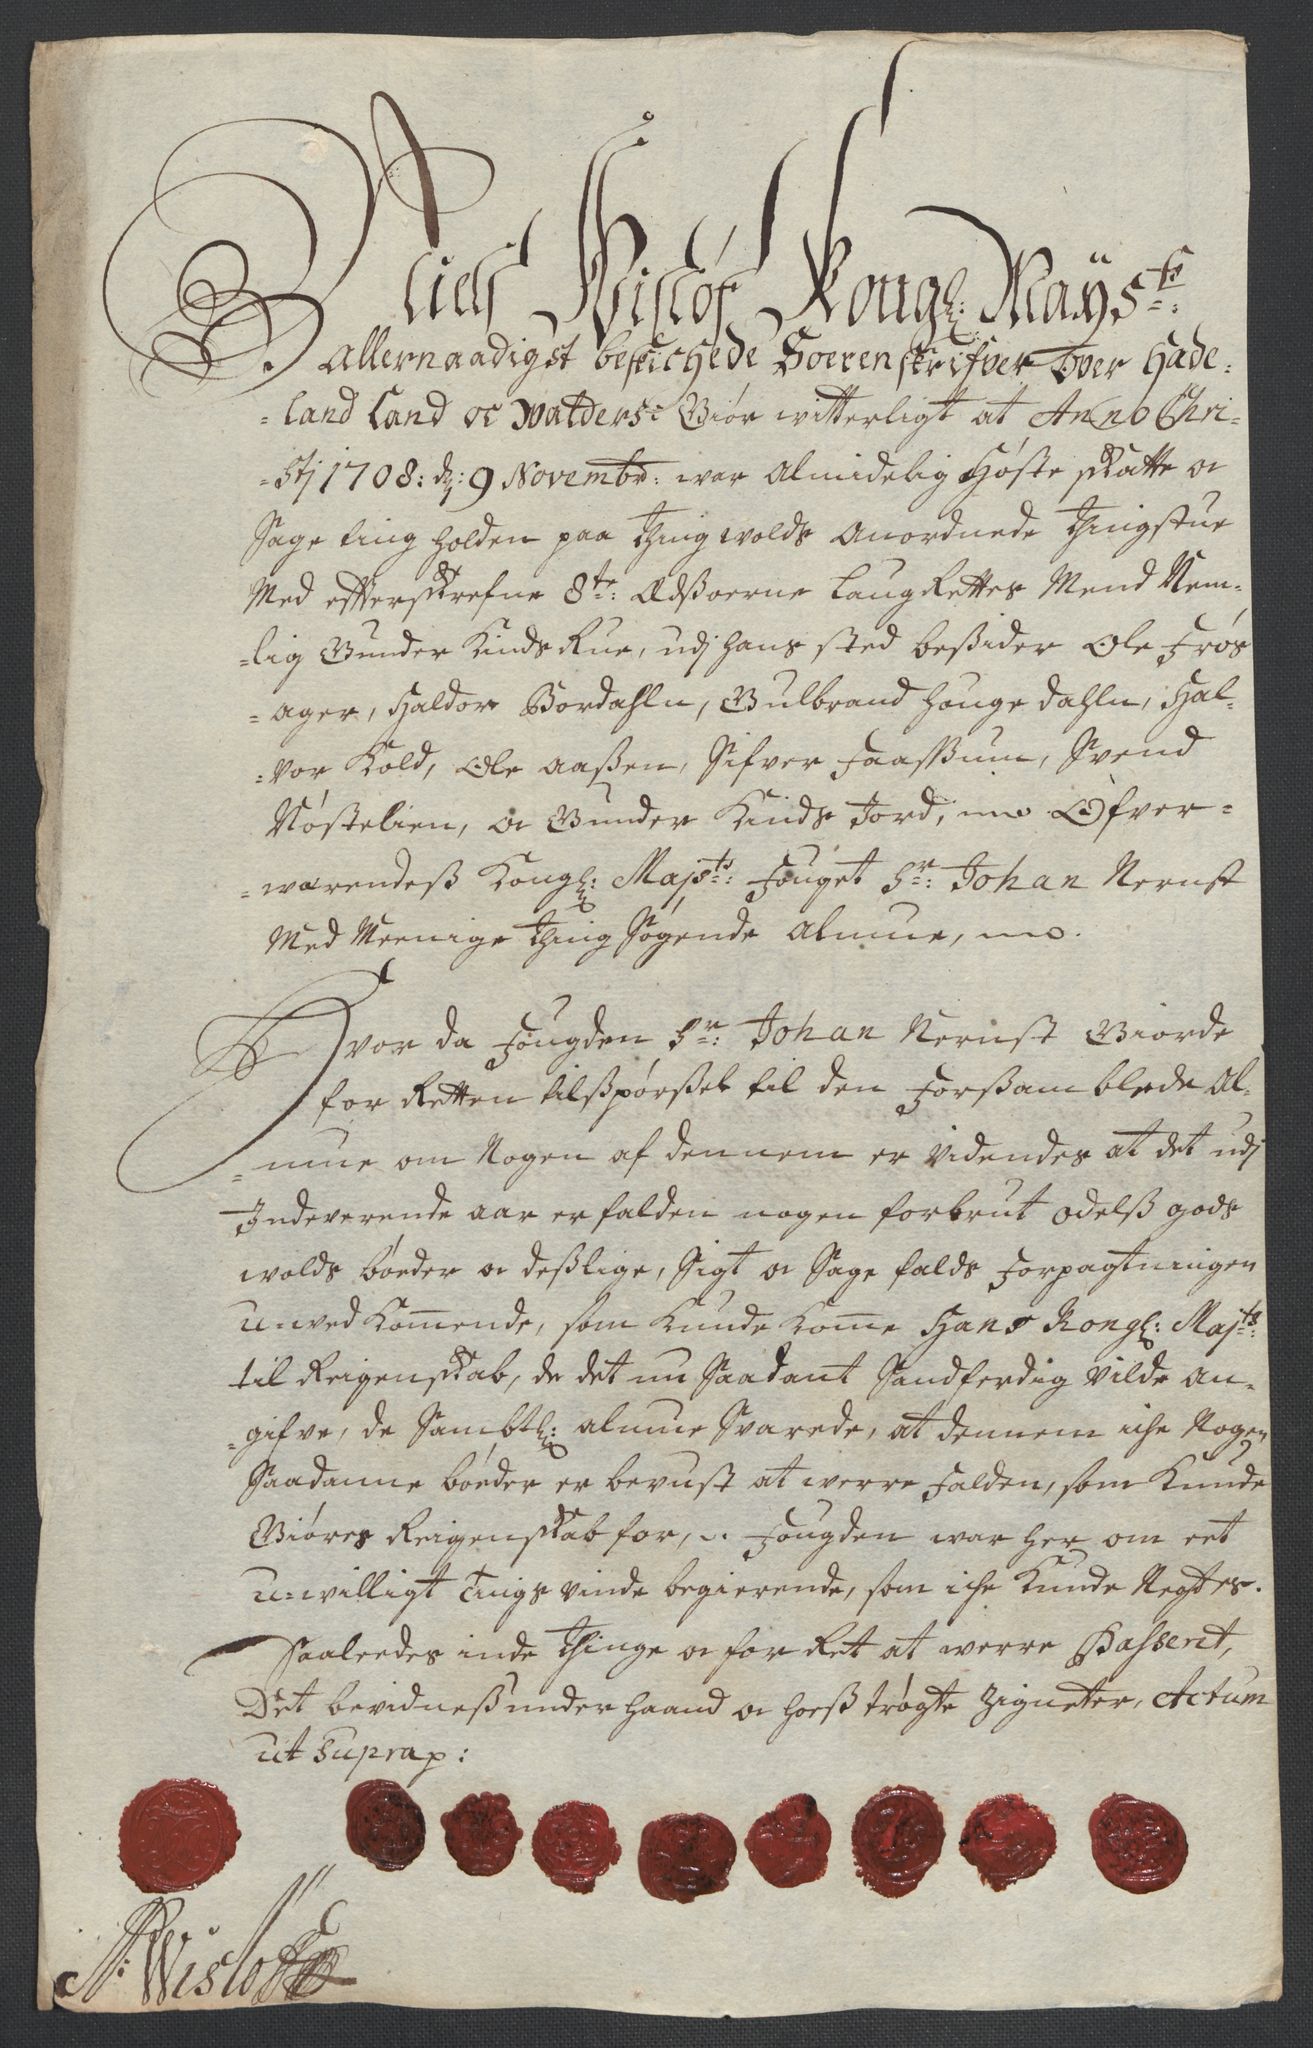 Niels Wisløf Kongl: Mayst:
allernaadigst beskichede Soerenskrifver over Hade-
-land Land oc Walders: Giør witterligt at Anno Chri-
-stj 1708: d: 9 Novembr: war Almidelig Høste skatte oc
Sage ting holden paa Thingwolds anordnede Thingstue
Med effterskrefne 8te: Ædsoerne LaugRettes Mend Nem-
-lig Gunder Kinds Rue, udj hans sted besider Ole Frøs
-ager, Haldor Bordahln, Gulbrand Houge dahln, Hal-
-vor Kold, Ole Aaßen, Sifver Faaßum, Svend
Nøstelien, oc Gunder Kinds Jord, Ofver-
-warendeß Kongl: Majsts: Fouget hr: Johan Nernst
Med Meenige Thing Søgende Almue,
Hvor da Fougden hr: Johan Nernst Giorde
for Retten tilspørßel til den Forsamblede Al-
-mue om Nogen af dennem er videndes at det udj
Indeverende aar er falden nogen forbrut odelß gods
wolds bøeder oc deßlige, Sigt oc Sage falds Forpagtningen
u-wed Kommende, som Kunde Komme Hans Kongl: Majts:
til Reigenskab, de det nu Saadant Sandferdig vilde an-
-gifve, de Sambtl: almue Svarede, at dennem iche Nogen
Saadanne bøeder er bevust at werre Falden, som Kunde
Giøres Reigenskab for, Fougden war her om eet
u-willigt Tings vinde begierende, som iche Kunde Negtes.
Saaledes inde Thinge oc for Ret at werre Passerit,
Det bevidneß under haand oc hoeß trøgte Zigneter, Actum
ut supra:
N: Wisløff